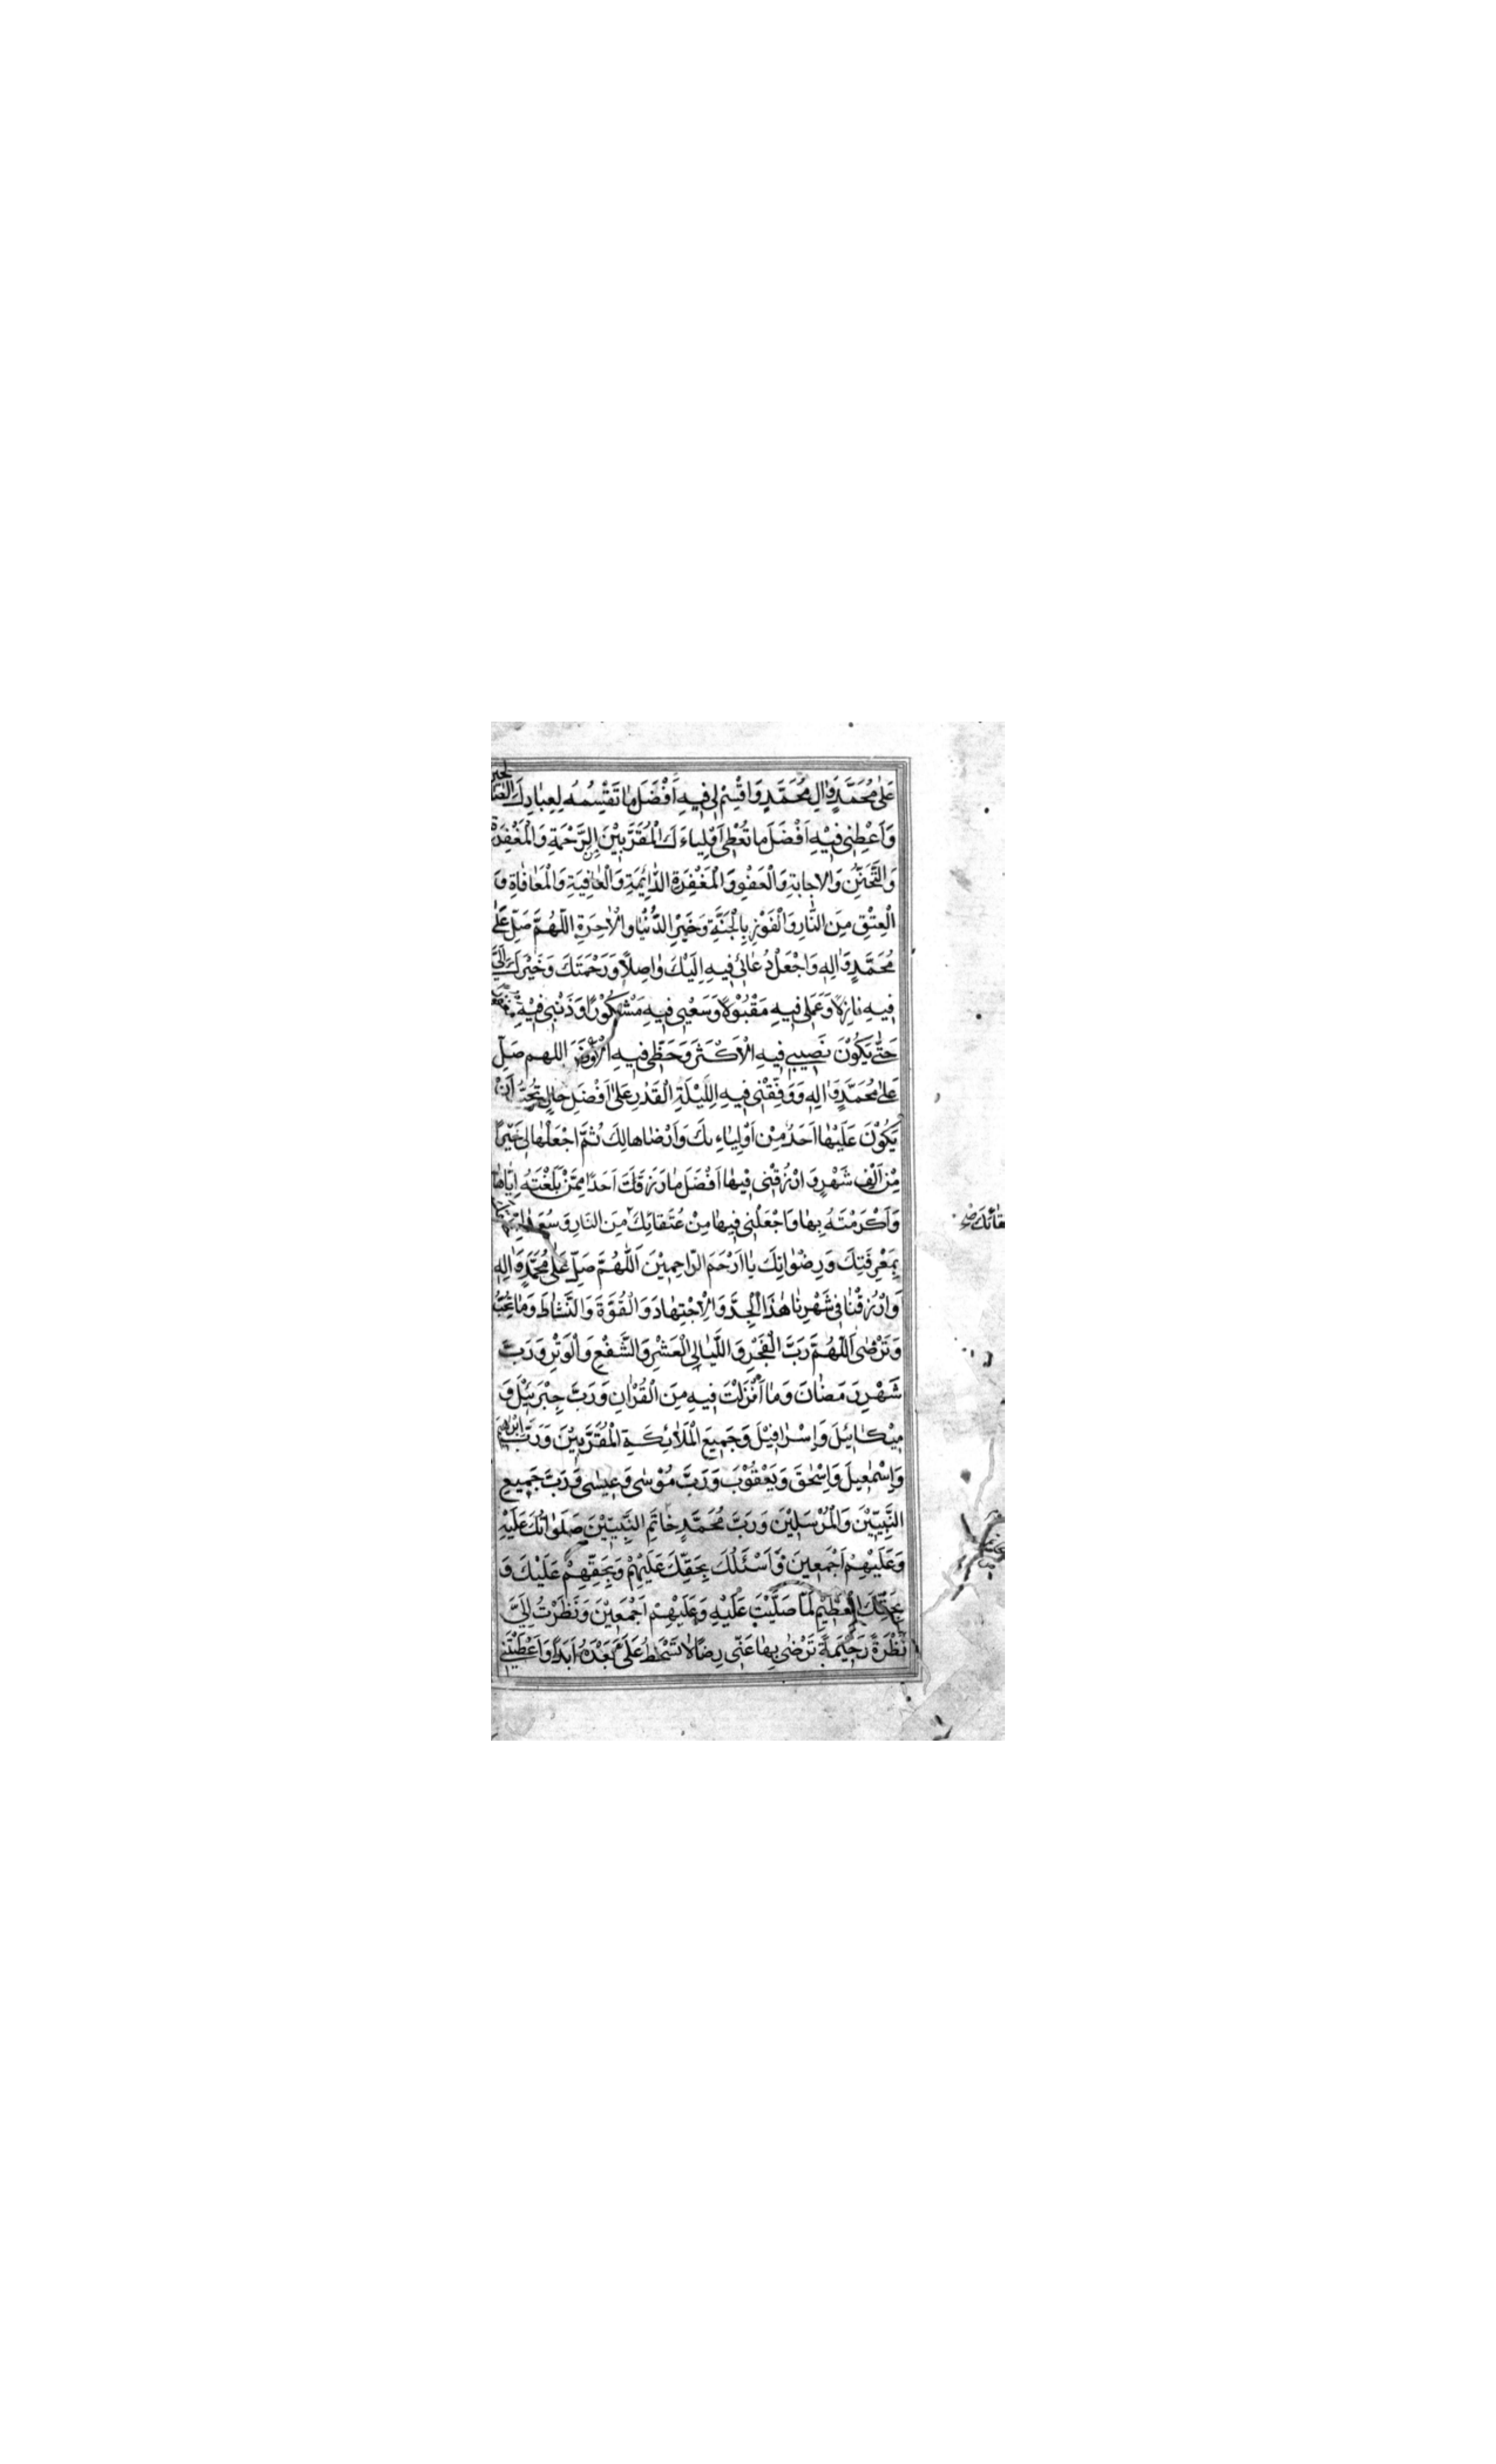 عَلٰى مُحَمَّدٍ وَاٰلِ مُحَمَّدٍ وَاقْسِمْ لِى فِيهِ اَفْضَلَ مَا تَقْسِمُهُ لِعِبَادِكَ الصّالحين
وَاَعْطِنِى فِيْهِ اَفْضَلَ مَا تُعْطِى اَوْلِيٰاءَكَ الْمُقَرَّبِيْنَ مِنَ الرَّحْمَةِ وَالْمَغْفِرَةِ
وَالتَّحَنُّنِ وَالْاِجابَةِ وَالْعَفْوِ وَالْمَغْفِرَةِ الدّٰائِمَةِ وَالْعٰافِيَةِ وَالْمُعٰافٰاةِ وَ
الْعِتْقِ مِنَ النّٰارِ وَالْفَوْزِ بِالْجَنَّةِ وَخَيْرِ الدُّنْيٰا وَالْاٰخِرَةِ اَللّٰهُمَّ صَلِّ عَلٰى
مُحَمَّدٍ وَاٰلِهِ وَاجْعَلْ دُعٰائِى فِيهِ اِلَيْكَ وٰاصِلًا وَرَحْمَتَكَ وَخَيْرَكَ اِلَىَّ
فِيهِ نازِلًا وَعَمَلِى فِيهِ مَقْبُوْلًا وَسَعْيِى فِيهِ مَشْكُوْرًا وَذَنْبِى فِيْهِ
حَتّٰى يَكُوْنَ نَصِيبِى فِيهِ الْاَكْثَرَ وَحَظِّى فِيهِ الْاَوْفَرَ اللهم صَلِّ
عَلٰى مُحَمَّدٍ وَاٰلِهِ وَوَفِّقْنِى فِيهِ لِلَيْلَةِ الْقَدْرِ عَلٰى اَفْضَلِ حٰالٍ تُحِبُّ اَنْ
يَكُوْنَ عَلَيْهٰا اَحَدٌ مِنْ اَوْلِيٰاءِكَ وَاَرْضٰاها لَكَ ثُمَّ اجْعَلْهٰا لِى خَيْرًا
مِنْ اَلْفِ شَهْرٍ وَارْزُقْنِى فِيهٰا اَفْضَلَ مٰا رَزَقْتَ اَحَدًا مِمَّنْ بَلَّغْتَهُ اِيّٰاهٰا
وَاَكْرَمْتَهُ بِهٰا وَاجْعَلْنِى فِيهٰا مِنْ عُتَقٰائِكَ مِنَ النّارِ وَسُعَدٰاءِ
بِمَغْرِفَتِكَ وَرِضْوٰانِكَ يٰا اَرْحَمَ الرّاحِمِيْنَ اَللّٰهُمَّ صَلِّ عَلٰى مُحَمَّدٍ وَاٰلِهِ
وَارْزُقْنٰا فِى شَهْرِنٰا هٰذَا الْجِدَّ وَالْاِجْتِهٰادَ وَالْقُوَّةَ وَالنَّشٰاطَ وَمٰا تُحِبُّ
وَتَرْضٰى اَللّٰهُمَّ رَبَّ الْفَجْرِ وَاللَّيٰالِى الْعَشْرِ وَالشَّفْعِ وَالْوَتْرِ وَرَبَّ
شَهْرِ رَمَضٰانَ وَمٰا اَنْزَلْتَ فِيهِ مِنَ الْقُرْاٰنِ وَرَبَّ جِبْرَئِيْلَ وَ
مِيْكٰائِيْلَ وَاِسْرٰافِيْلَ وَجَمِيعِ الْمَلٰائِكَةِ الْمُقَرَّبِيْنَ وَرَبَّ اِبْرٰهِيمَ
وَاِسْمٰعِيلَ وَاِسْحٰقَ وَيَعْقُوْبَ وَرَبَّ مُوْسٰى وَعِيسٰى وَرَبَّ جَمِيعِ
النَّبِيّيْنَ وَالْمُرْسَلِيْنَ وَرَبَّ مُحَمَّدٍ خٰاتَمِ النَّبِيّيْنَ صَلَوٰاتُكَ عَلَيْهِ
وَعَلَيْهِمْ اَجْمَعِينَ وَاَسْئَلُكَ بِحَقِّكَ عَلَيْهِمْ وَبِحَقِّهِمْ عَلَيْكَ وَ
بِحَقِّكَ الْعَظِيمِ لَمّٰا صَلَّيْتَ عَلَيْهِ وَعَلَيْهِمْ اَجْمَعِيْنَ وَنَظَرْتَ اِلَىَّ
نَظْرَةً رَحِيمَةً تَرْضٰى بِهٰا عَنّى رِضًا لٰا تَسْخَطُ عَلَىَّ بَعْدَهُ اَبَدًا وَاَعْطَيْتَنِى